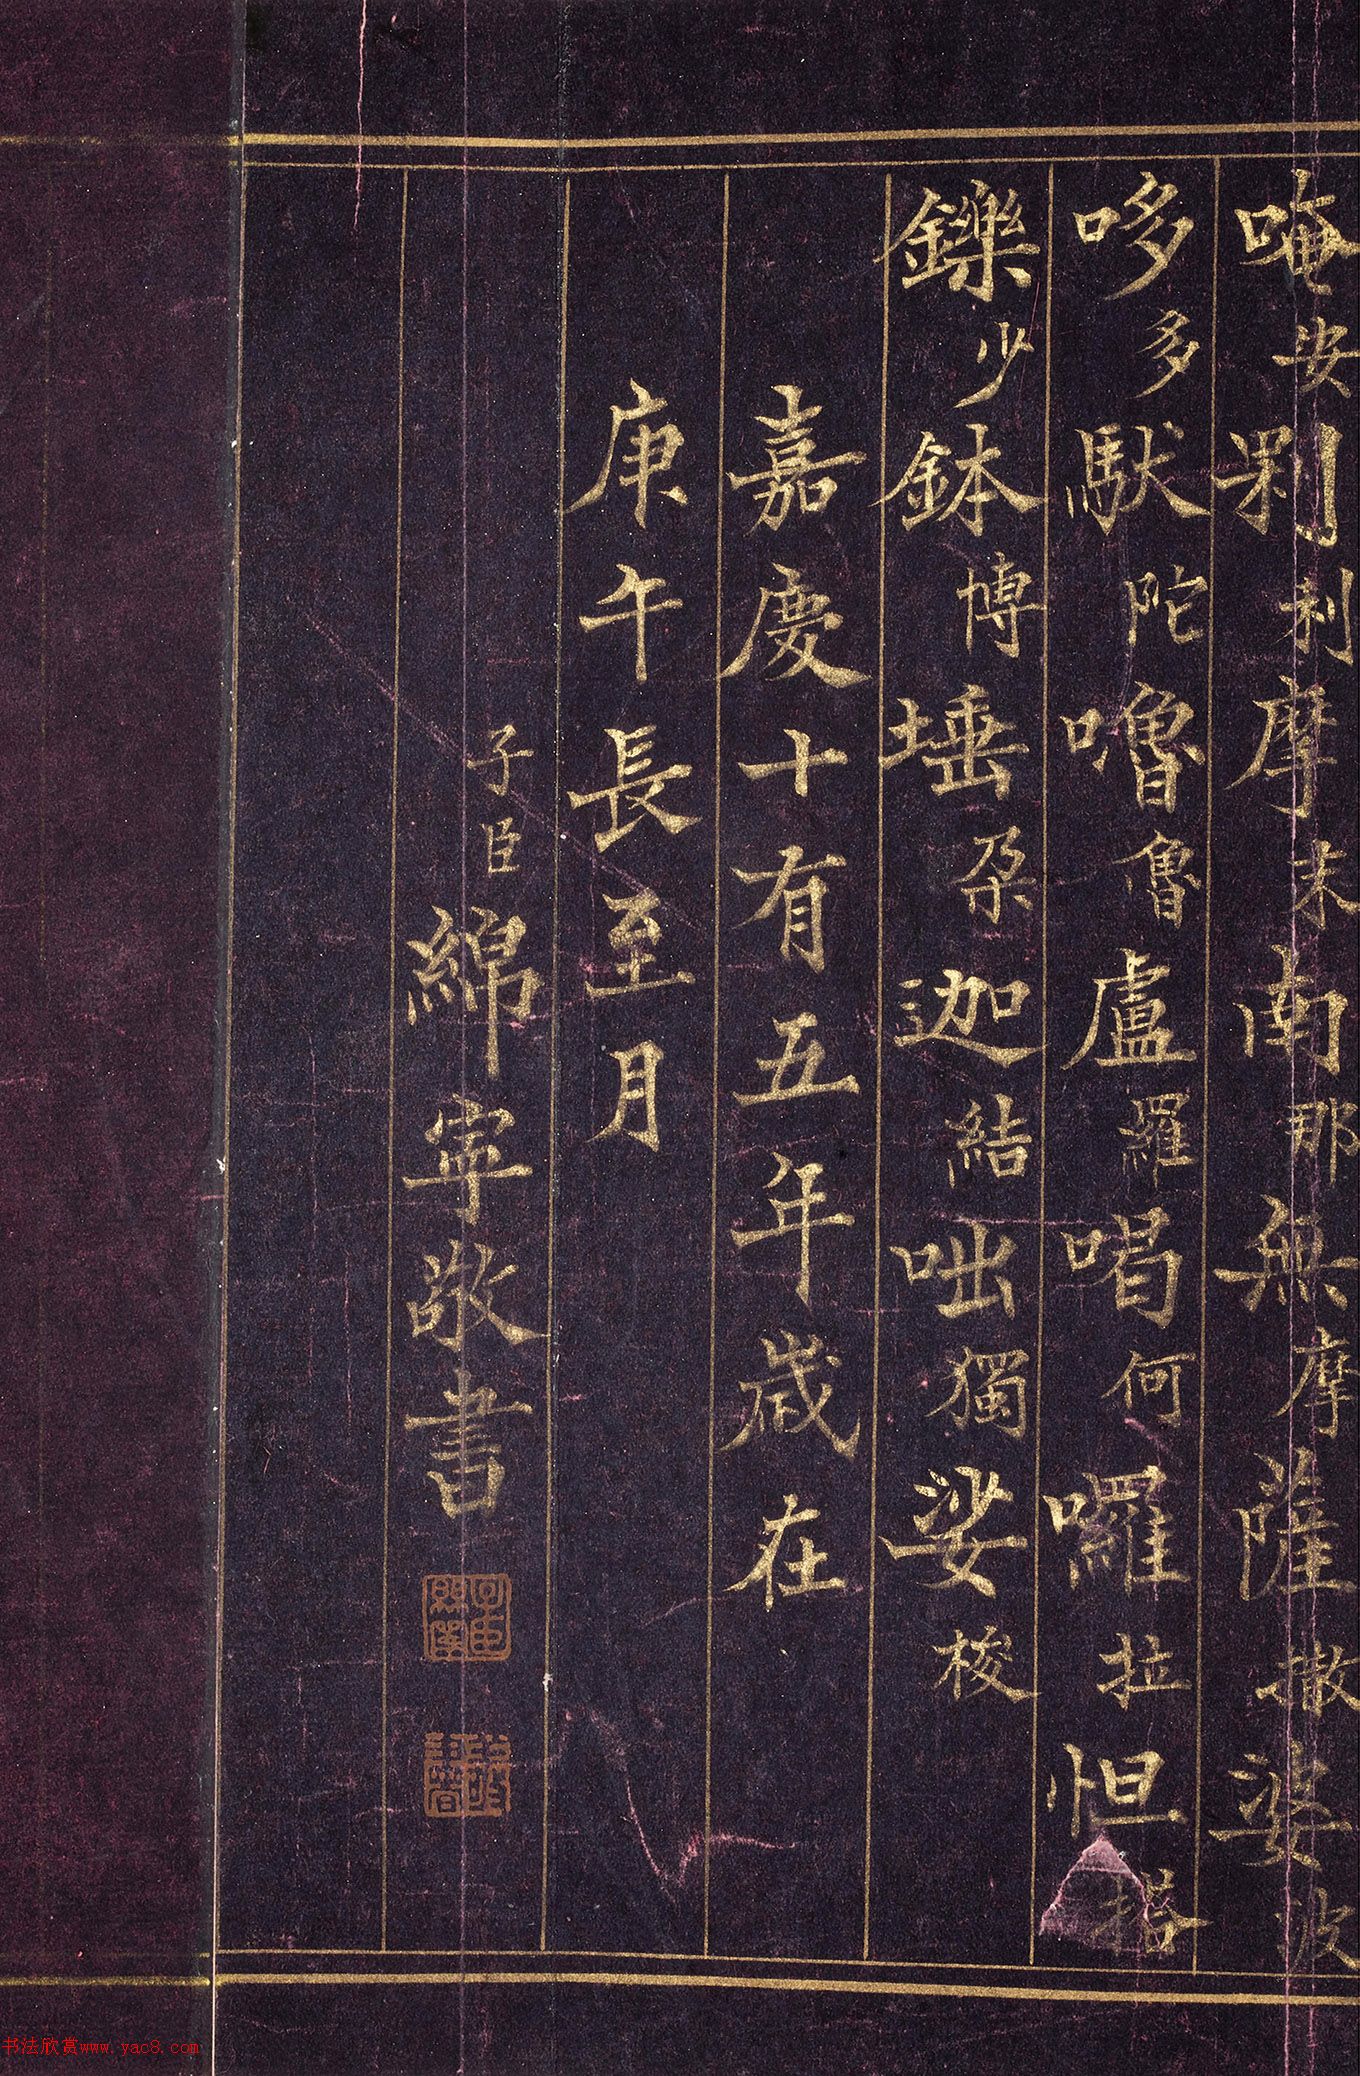 唵安𠛴利摩末南那無摩薩撒婆波
哆多馱陀嚕魯盧羅喝何囉拉怛搭
鑠少鉢博埵朵迦結咄獨娑梭
嘉慶十有五年歲在
庚午長至月
子臣綿寧敬書
书法欣赏www.yac8.com